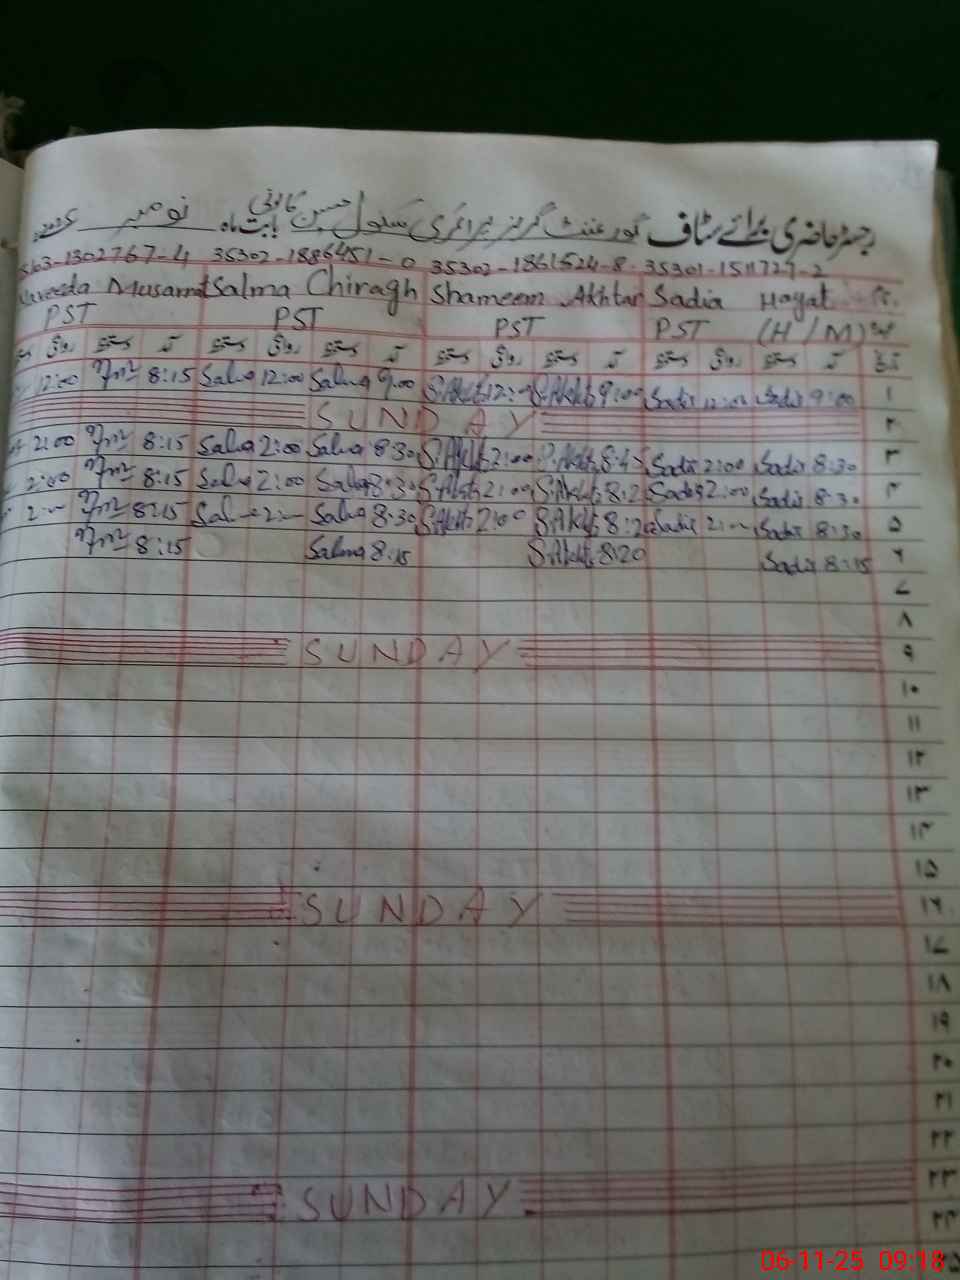 رجسٹر حاضری برائے سٹاف گورنمنٹ گرلز پرائمری سکول حسین کالونی بابت ماہ نومبر 2025ء
1302767-4 35302-1886451-0 35302-1861524-8 35301-1511727-2
Naveeda Musarrat Salma Chiragh Shameem Akhtar Sadia Hayat
PST PST PST PST (H/M)
دستخط آمد دستخط روانگی دستخط آمد دستخط روانگی دستخط آمد دستخط روانگی دستخط آمد تاریخ
12:00 8:15 Salma 12:00 Salma 9:00 S.Akht 12:00 S.Akht 9:00 Sadia 12:00 Sadia 9:00 ۱
SUNDAY ۲
2:00 8:15 Salma 2:00 Salma 8:30 S.Akht 2:00 S.Akht 8:4 Sadia 2:00 Sadia 8:30 ۳
2:00 8:15 Salma 2:00 Salma 8:30 S.Akht 2:00 S.Akht 8:2 Sadia 2:00 Sadia 8:30 ۴
2:00 8:15 Sal 2:00 Salma 8:30 S.Akht 2:00 S.Akht 8:20 Sadia 2:00 Sadia 8:30 ۵
8:15 Salma 8:15 S.Akht 8:20 Sadia 8:15 ۶
۷
۸
SUNDAY ۹
۱۰
۱۱
۱۲
۱۳
۱۴
۱۵
SUNDAY ۱۶
۱۷
۱۸
۱۹
۲۰
۲۱
۲۲
SUNDAY ۲۳
۲۴
06-11-25 09:18